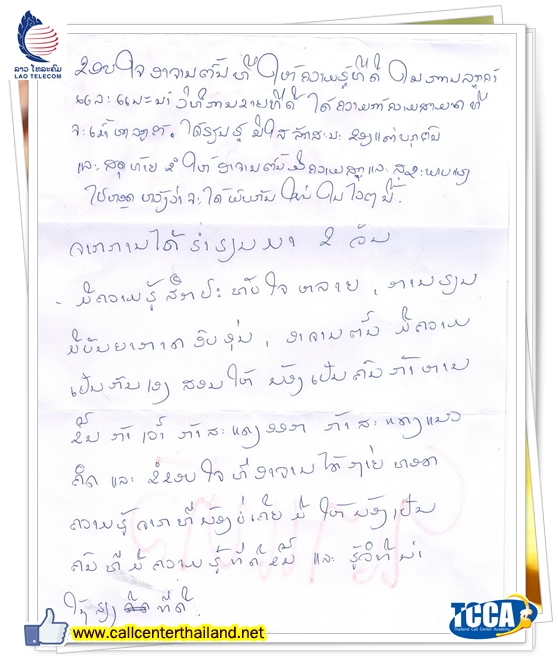 ລາວ ໂທລະຄົມ
LAO TELECOM
ຂອບໃຈ ອາຈານຕົ້ນ ທີ່ ໃຫ້ ຄວາມຮູ້ທີ່ດີ ໃນ ການ ລູກຄ້າ
ແລະ ແນະນຳ ວິທີການຂາຍທີ່ດີ ໄດ້ ຄວາມ ຄວາມສາມາດ ທີ່
ຈະ ເຂົ້າຫາລູກຄ້າ. ໄດ້ຮຽນຮູ້ ນິໃສ ລັກສະນະ ຂອງແຕ່ບຸກຄົນ
ແລະ ສຸດທ້າຍ ຂໍ ໃຫ້ ອາຈານຕົ້ນມີຄວາມສຸກ ແລະ ສຸຂະພາບແຂງ
ຫວັງວ່າ ຈະ ໄດ້ພົບກັນ ໃໝ່ ໃນ ໄວໆນີ້.
ຈາກການໄດ້ ຮ່ຳຮຽນມາ 2 ວັນ
- ມີຄວາມຮູ້ສຶກປະທັບໃຈຫລາຍ, ການຮຽນ
ມີບັນຍາກາດອົບອຸ່ນ, ອາຈານຕົ້ນ ມີຄວາມ
ເປັນກັນເອງ ສອນໃຫ້ ນ້ອງເປັນຄົນກ້າຫານ
ຂຶ້ນ ກ້າເວົ້າ ກ້າສະແດງອອກ ກ້າສະແດງແນວ
ຄິດ ແລະ ຂໍຂອບໃຈທີ່ອາຈານໄດ້ຖ່າຍທອດ
ຄວາມຮູ້ ຈາກທີ່ນ້ອງບໍ່ເຄີຍມີ ໃຫ້ນ້ອງເປັນ
ຄົນທີ່ມີຄວາມຮູ້ທີ່ດີຂຶ້ນ ແລະ ຮູ້ວິທີນຳ
ໃຊ້ສຽງ ທີ່ດີ.
TCCA
Thailand Call Center Academy
www.callcenterthailand.net